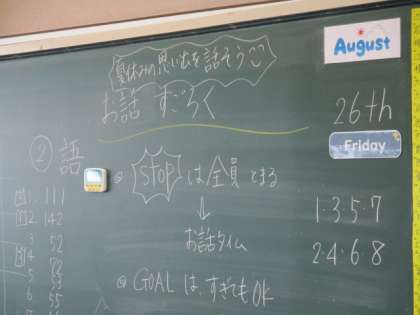 夏休みの思い出を話そう
August
お話 すごろく
26th
Friday
② 語
◎ STOP は全員 とまる
↓
お話タイム
◎ GOAL は、すぎても OK
1・3・5・7
2・4・6・8
1. 111
2. 142
3 52
4 72
5 53
6 55